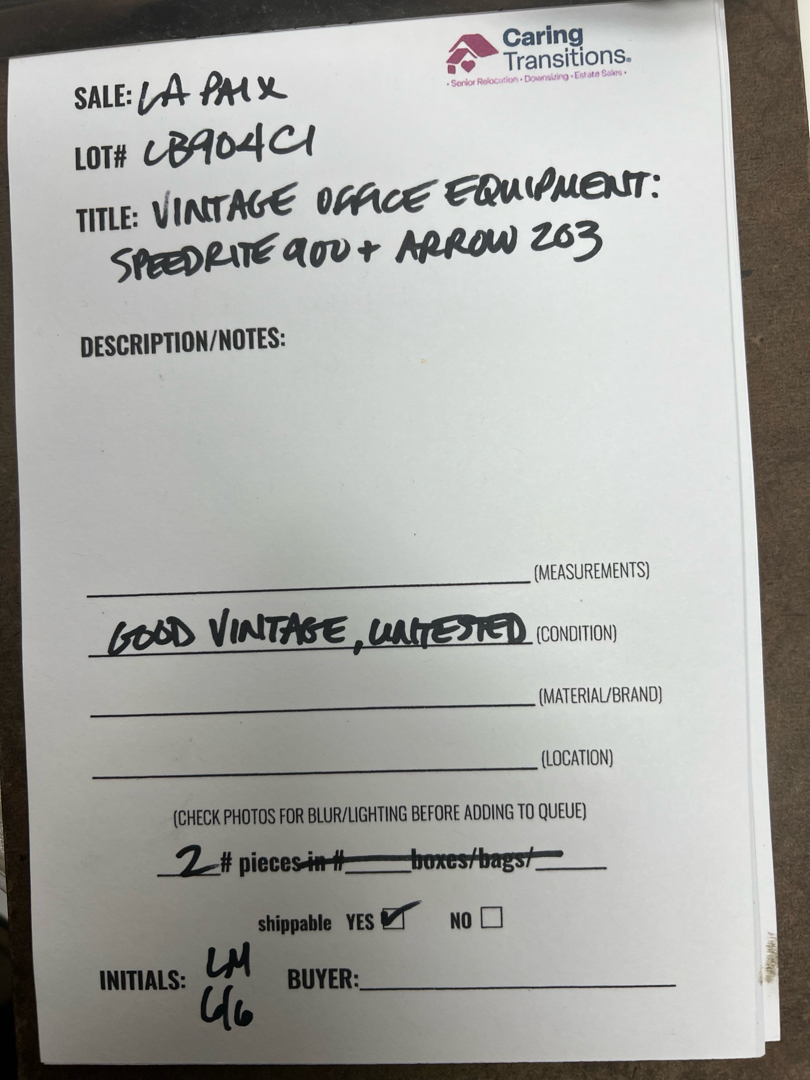 Caring
Transitions.
• Senior Relocation • Downsizing • Estate Sales •
SALE: LA PAIX
LOT# LB904C1
TITLE: VINTAGE OFFICE EQUIPMENT:
SPEEDRITE 900 + ARROW 203
DESCRIPTION/NOTES:
(MEASUREMENTS)
GOOD VINTAGE, UNTESTED (CONDITION)
(MATERIAL/BRAND)
(LOCATION)
(CHECK PHOTOS FOR BLUR/LIGHTING BEFORE ADDING TO QUEUE)
2 # pieces in #_____boxes/bags/_____
shippable YES ☑ NO ☐
INITIALS: LM BUYER:
6/6